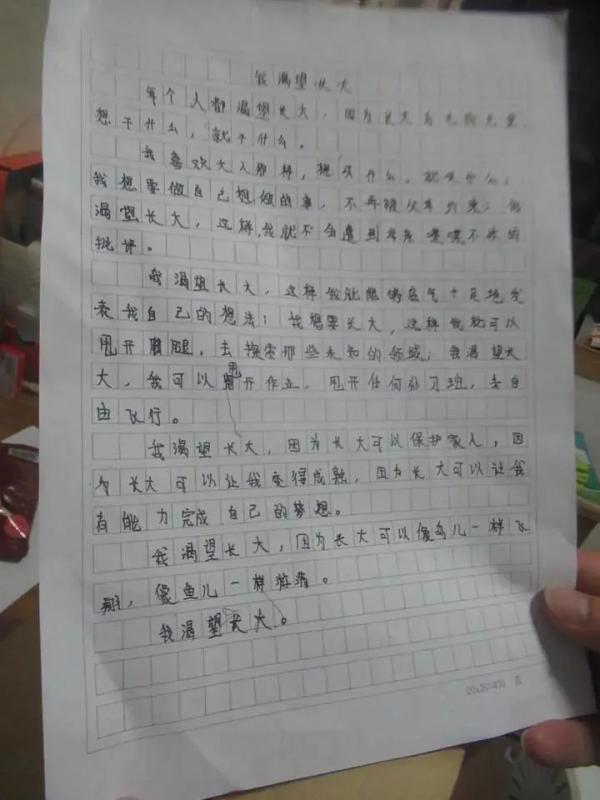 我渴望长大
每个人都渴望长大，因为长大后
想干什么，就干什么。
我喜欢大人那样，想买什么，就买什么；
我想要做自己想做的事，不再被父母
渴望长大，这样，我就不会遭到 喋喋不休的
批评。
我渴望长大，这样我就能够底气十足地发
表我自己的想法；我想要长大，这样我就可以
甩开 腿，去探索那些未知的领域；我渴望长
大，我可以甩开作业，甩开任何补习班，去自
由飞行。
我渴望长大，因为长大可以保护家人，因
为长大可以让我变得成熟，因为长大可以让我
有能力完成自己的梦想。
我渴望长大，因为长大可以像鸟儿一样飞
翔，像鱼儿一样 。
我渴望长大。